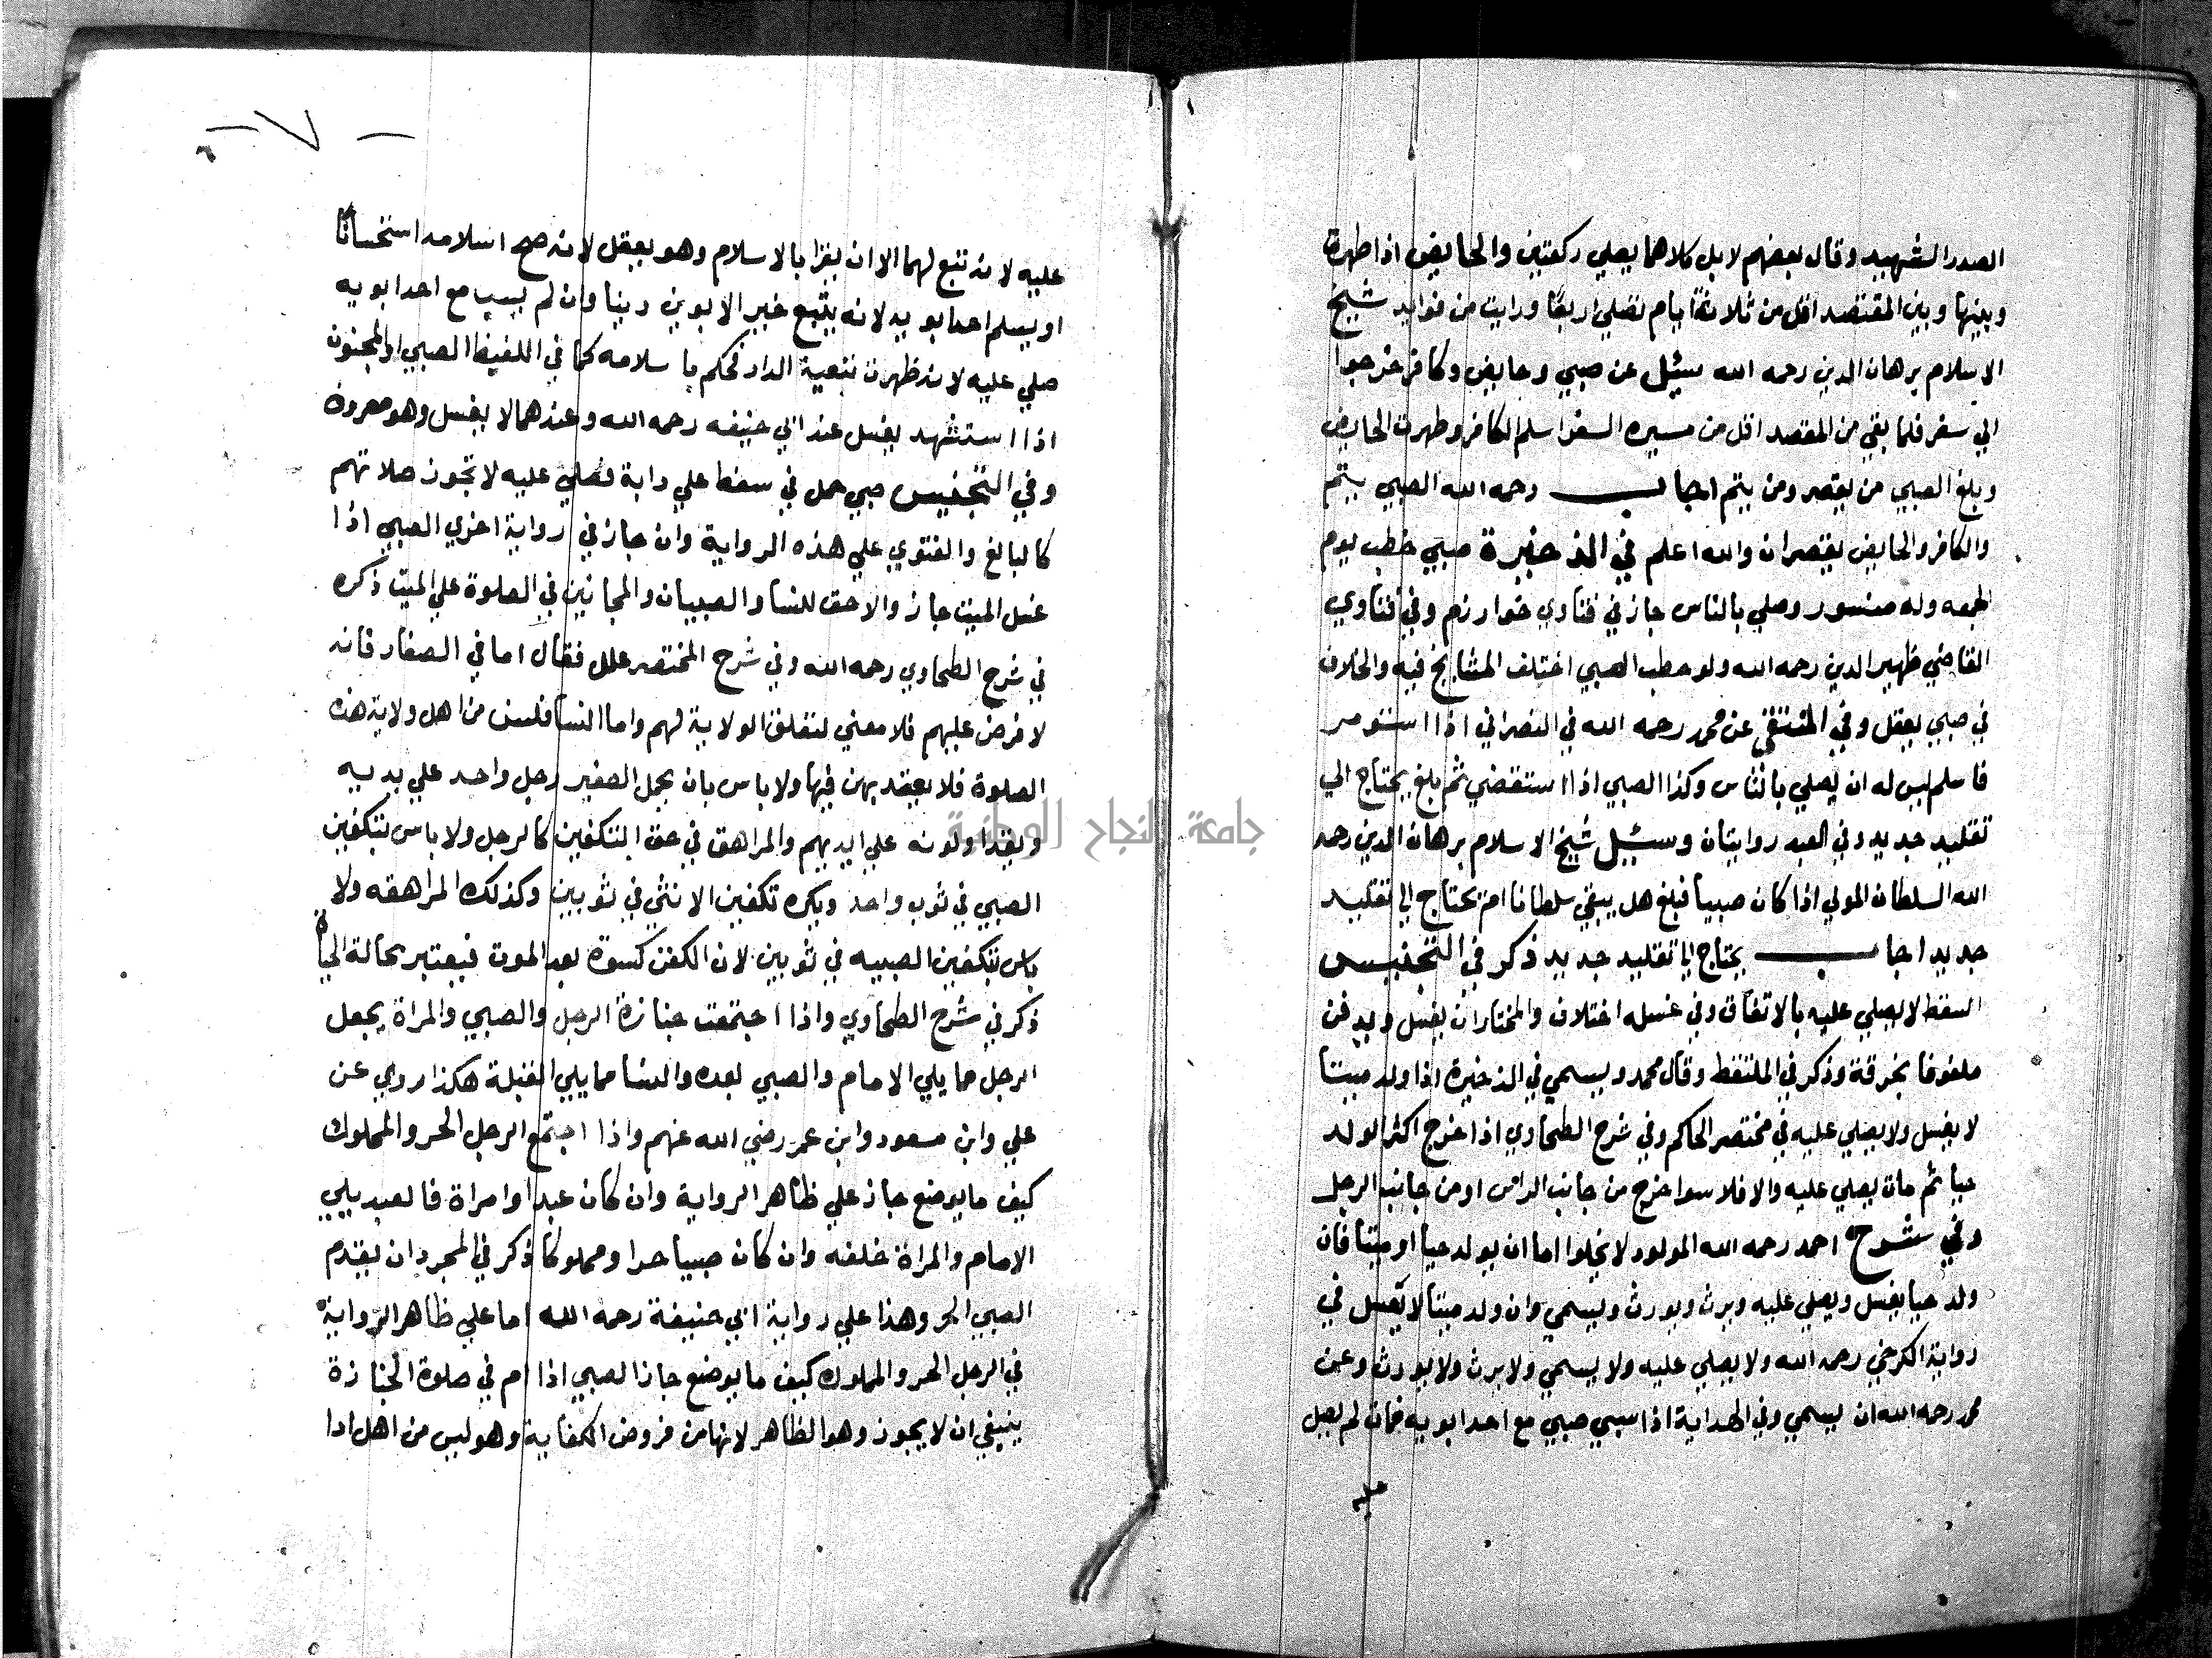 الصدر الشهيد وقال بعضهم لا بل كلاهما يصلي ركعتين والحايض اذا طهرت
وبينها وبين المقتصد اقل من ثلاثة ايام تصلي اربعًا ورايت من فوايد شيخ
الاسلام برهان الدين رحمه الله سئيل عن صبي وحايض وكافر خرجوا
الي سفر فلما بقي من المقصد اقل من مسيره السفر اسلم الكافر وطهرت الحايض
وبلغ الصبي من يقصر ومن يتم اجاب رحمه الله الصبي يتم
والكافر والحايض يقصران والله اعلم في الذخيرة صبي خطب يوم
الجمعه وله منشور وصلي بالناس جاز في فتاوي خوارزم وفي فتاوي
القاضي ظهير الدين رحمه الله ولو خطب الصبي اختلف المشايخ فيه والخلاف
في صبي يعقل وفي المنتقي عن محمد رحمه الله في النصراني اذا استومر
فاسلم ليس له ان يصلي بالناس وكذا الصبي اذا استقضي ثم بلغ يحتاج الي
تقليد جديد وفي العبد روايتان وسئيل شيخ الاسلام برهان الدين رحمه
الله السلطان المولي اذا كان صبيا فبلغ هل يبقي سلطانا ام يحتاج الي تقليد
جديد اجاب يحتاج الي تقليد جديد ذكر في التجنيس
السقط لا يصلي عليه بالاتفاق وفي غسله اختلاف والمختار ان يغسل ويدفن
ملفوفا بخرقة وذكر في الملتقط وقال محمد ويسمي في الذخيرة اذا ولد ميتا
لا يغسل ولا يصلي عليه في مختصر الحاكم وفي شرح الطحاوي اذا خرج اكثر الولد
حيا ثم مات يصلي عليه والا فلا سوا خرج من جانب الراس او من جانب الرجل
وفي شرح احمد رحمه الله المولود لا يخلوا اما ان يولد حيا او ميتا فان
ولد حيا يغسل ويصلي عليه ويرث ويورث ويسمي وان ولد ميتا لا يغسل في
رواية الكرخي رحمه الله ولا يصلي عليه ولا يسمي ولا يرث ولا يورث وعن
محمد رحمه الله ان يسمي وفي الهداية اذا سبي صبي مع احد ابويه فمات لم يصل
عليه
٧
عليه لانه تبع لهما الا ان يقرا بالاسلام وهو يعقل لانه صح اسلامه استحسانًا
او يسلم احد ابويه لانه يتبع خير الابوين دينا وان لم يسب مع احد ابويه
صلي عليه لانه ظهرت تبعية الدار فحكم باسلامه كما في اللقيط الصبي او المجنون
اذا استشهد يغسل عند ابي حنيفه رحمه الله وعندهما لا يغسل وهو معروف
وفي التجنيس صبي حمل في سفط علي دابة فصلي عليه لا تجوز صلاتهم
كالبالغ والفتوي علي هذه الرواية وان جاز في رواية اخري الصبي اذا
غسل الميت جاز ولا حق للنسا والصبيان والمجانين في الصلوة علي الميت ذكره
في شرح الطحاوي رحمه الله وفي شرح المختصر علل فقال اما في الصغار فانه
لا فرض عليهم فلا معني لتعلق الولاية لهم واما النسا فلسن من اهل ولاية هذه
الصلوة فلا يعتد بهن فيها ولا باس بان يحمل الصغير رجل واحد علي يديه
ويتداولونه علي ايديهم والمراهق في حق التكفين كالرجل ولا باس بتكفين
الصبي في ثوب واحد ويكره تكفين الانثي في ثوبين وكذلك المراهقه ولا
باس بتكفين الصبيه في ثوبين لان الكفن كسوة بعد الموت فيعتبر بحالة الحياة
ذكر في شرح الطحاوي واذا اجتمعت جنازة الرجل والصبي والمراة يجعل
الرجل مما يلي الامام والصبي بعده والنسا مما يلي القبلة هكذا روي عن
علي وابن مسعود وابن عمر رضي الله عنهم واذا اجتمع الرجل الحر والمملوك
كيف ما يوضع جاز علي ظاهر الرواية وان كان عبدا وامراة فالعبد يلي
الامام والمراة خلفه وان كان صبيا حرا ومملوكا ذكر في المجرد ان يقدم
الصبي الحر وهذا علي رواية ابي حنيفة رحمه الله اما علي ظاهر الرواية
في الرجل الحر والمملوك كيف ما يوضع جاز الصبي اذا ام في صلوة الجنازة
ينبغي ان لا يجوز وهو الظاهر لانها من فروض الكفاية وهو ليس من اهل ادا
جامعة النجاح الوطنية